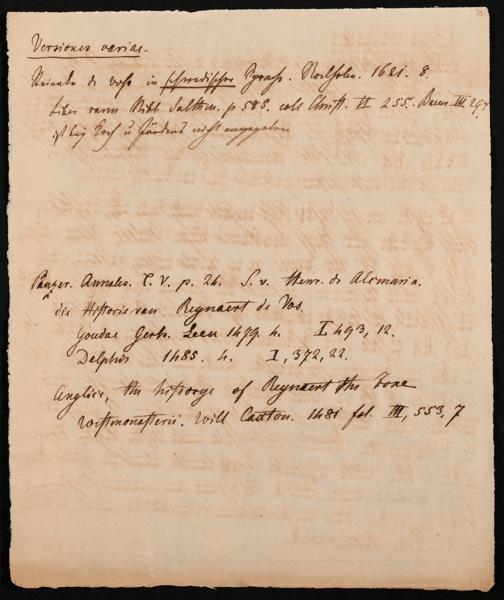 Versiones variae.
Reinike de voss in schwedischer Sprach. Rostholm. 1621. 8.
Liber rarus Bibl. Salthen. p 585. coll. Amst. II 255. Bauer III 297
ist bey Koch u Jördens nicht angegeben
Panzer. Annales. T. V. p. 24. S. v. Henr. de Alcmaria.
die Historie van Reynaert de Vos
Goudae Gerh. Leeu 1479. 4. I 493, 12.
Delphis 1485. 4. I, 372, 22.
Anglice, the historye of Reynaert the Foxe
Westmonasterii. Will Caxton. 1481 fol. III, 553, 7